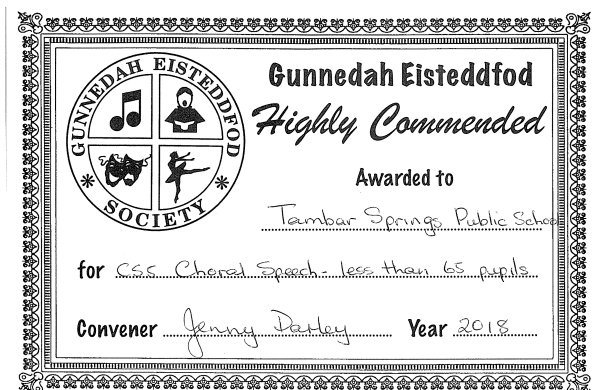 GUNNEDAH EISTEDDFOD
SOCIETY
Gunnedah Eisteddfod
Highly Commended
Awarded to
Tambar Springs Public School
for CSS Choral Speech - less than 65 pupils
Convener Jenny Darley Year 2018